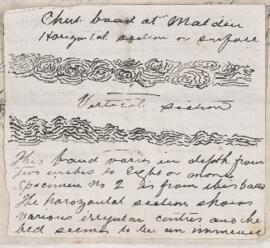 Chert band at Malden
Horizontal section or surface
Vertical section
This band varies in depth from
two inches to Eight or more
Specimen No 2 is from this band
The horozontal section shows
various irregular centres and the
bed seems to be an immense